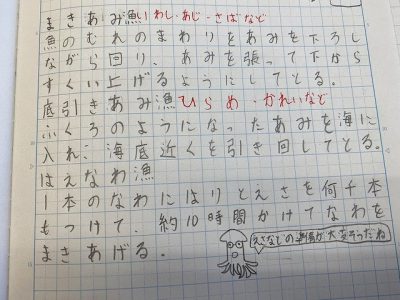 まきあみ漁いわし・あじ・さばなど
魚のむれのまわりをあみを下ろし
ながら回り、あみを張って下から
すくい上げるようにしてとる。
底引きあみ漁ひらめ・かれいなど
ふくろのようになったあみを海に
入れ、海底近くを引き回してとる。
はえなわ漁
1本のなわにはりとえさを何千本
もつけて、約10時間かけてなわを
まきあげる。
えさなどの準備が大変そうだね